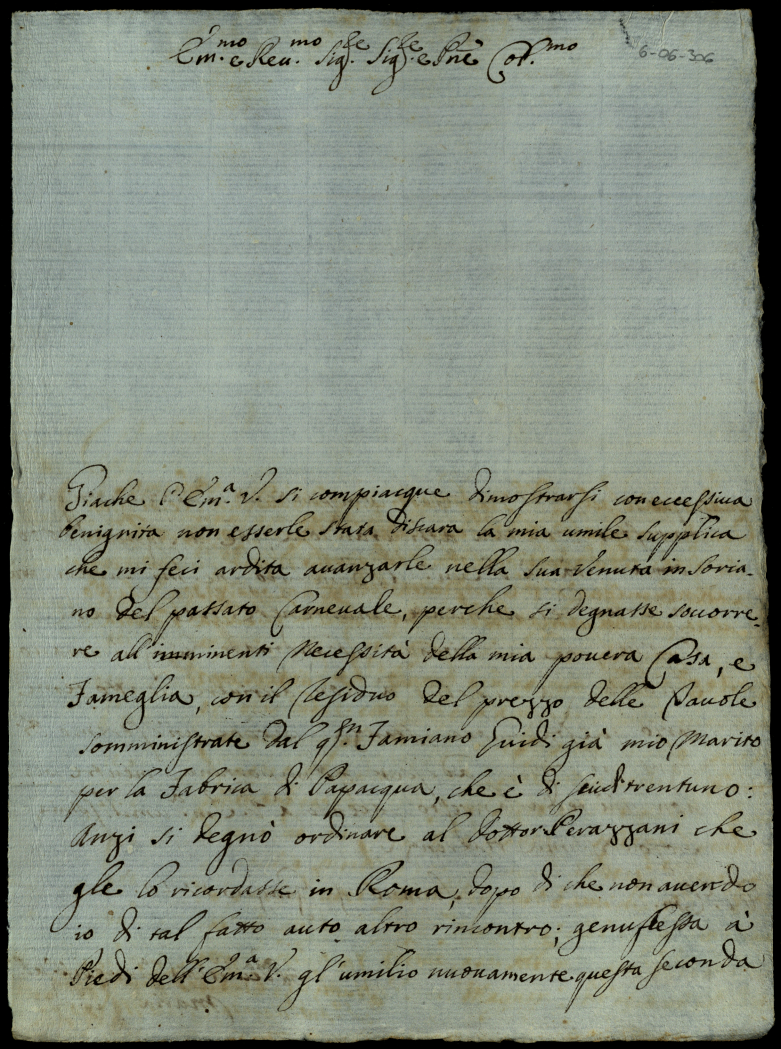 6-06-306
Em.mo e Reu.mo Sig.re Sig.re e Pne Col.mo
Giache l'Em.a V. si compiacque dimostrarsi con eccessiua
benignita non esserle stata discara la mia umile supplica
che mi feci ardita auanzarle nella sua Venuta in Soria-
no del passato Carneuale, perche si degnasse soccorre-
re all'imminenti Necessità della mia pouera Casa, e
Fameglia, con il residuo del prezzo delle Tauole
somministrate dal q.m Famiano Guidi già mio Marito
per la Fabrica di Papacqua, che è di scudi trentuno:
Anzi si degnò ordinare al Dottor Perazzani che
gle lo ricordasse in Roma, dopo di che non auendo
io di tal fatto auto altro rincontro; genuflessa à
Piedi dell'Em.a V. gl'umilio nuouamente questa seconda